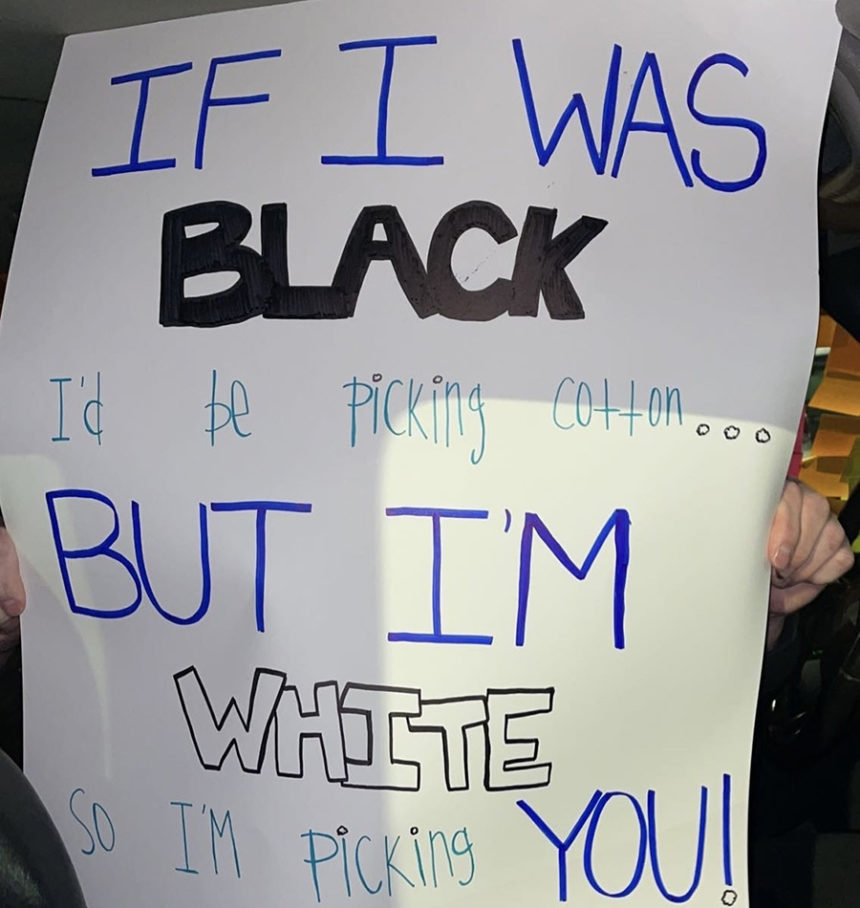 IF I WAS
BLACK
I'd be picking cotton...
BUT I'M
WHITE
SO I'M picking YOU!